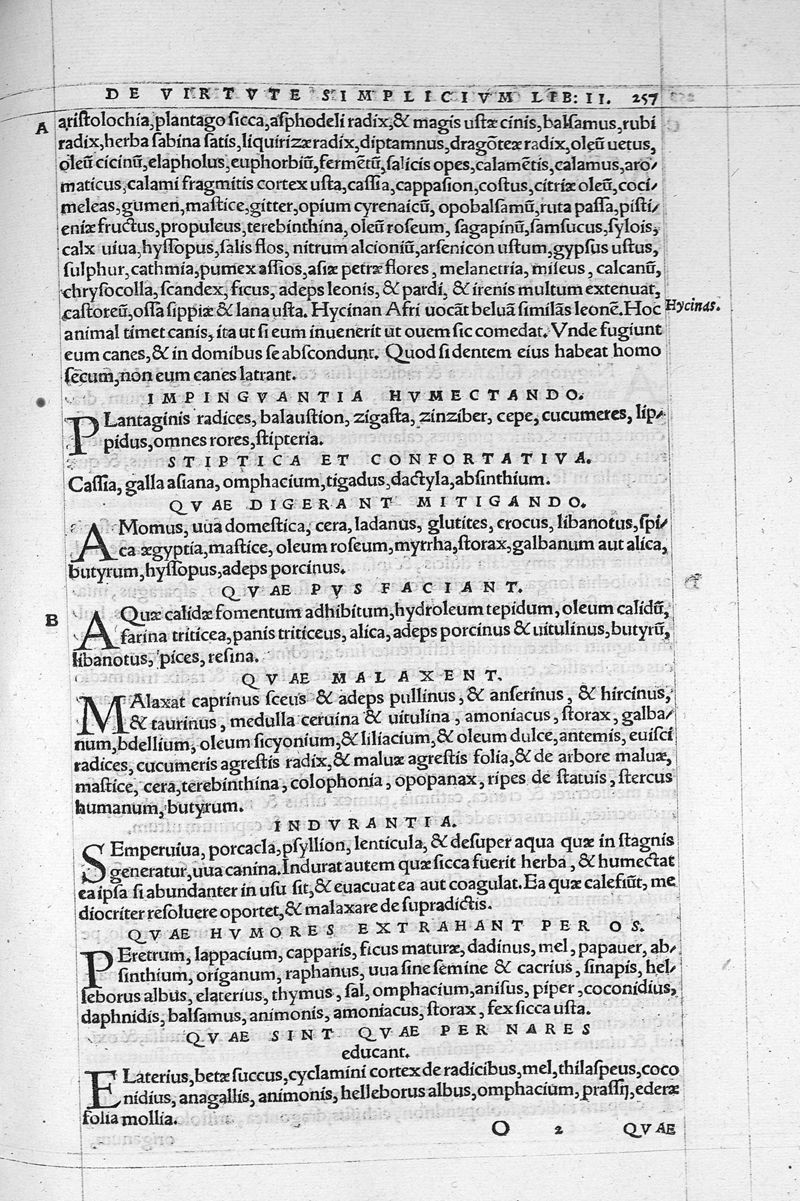 DE VIRTVTE SIMPLICIVM LIB: II. 257
A ariſtolochia,plantago ſicca,aſphodeli radix,& magis uſtæ cinis,balſamus,rubi
radix,herba ſabina ſatis,liquirizæ radix,diptamnus,dragōteæ radix,oleū uetus,
oleū cicinū,elapholus,euphorbiū,fermētū,ſalicis opes,calamētis,calamus,aro/
maticus,calami fragmitis cortex uſta,caſſia,cappaſion,coſtus,citriæ oleū,coci/
meleas,gumen,maſtice,gitter,opium cyrenaicū, opobalſamū,ruta paſſa,piſti/
eniæ fructus,propuleus,terebinthina, oleū roſeum, ſagapinū,ſamſucus,ſylois,
calx uiua,hyſſopus,ſalis flos, nitrum alcioniū,arſenicon uſtum,gypſus uſtus,
ſulphur,cathmia,pumex aſſios,aſiæ petræ flores, melanetria, miſeus, calcanū,
chryſocolla, ſcandex, ficus, adeps leonis, & pardi, & irenis multum extenuat,
caſtoreū,oſſa ſippiæ & lana uſta. Hycinan Afri uocāt beluā ſimilās leonē. Hoc
Hycinas.
animal timet canis, ita ut ſi eum inuenerit ut ouem ſic comedat. Vnde fugiunt
eum canes,& in domibus ſe abſcondunt. Quod ſi dentem eius habeat homo
ſecum,non eum canes latrant.
IMPINGVANTIA HVMECTANDO.
PLantaginis radices, balauſtion, zigaſta, zinziber, cepe, cucumeres, lip/
pidus,omnes rores,ſtipteria.
STIPTICA ET CONFORTATIVA.
Caſſia, galla aſiana, omphacium,tigadus,dactyla,abſinthium.
QVAE DIGERANT MITIGANDO.
AMomus, uua domeſtica, cera, ladanus, glutites, crocus, libanotus,ſpi/
ca ægyptia,maſtice, oleum roſeum,myrrha,ſtorax,galbanum aut alica,
butyrum,hyſſopus,adeps porcinus.
QVAE PVS FACIANT.
B AQuæ calidæ fomentum adhibitum,hydroleum tepidum, oleum calidū,
farina triticea,panis triticeus, alica, adeps porcinus & uitulinus,butyrū,
libanotus, pices, reſina.
QVAE MALAXENT.
MAlaxat caprinus ſceus & adeps pullinus, & anſerinus, & hircinus,
& taurinus, medulla ceruina & uitulina, amoniacus, ſtorax, galba/
num,bdellium, oleum ſicyonium,& liliacium,& oleum dulce,antemis, euiſci
radices, cucumeris agreſtis radix,& maluæ agreſtis folia,& de arbore maluæ,
maſtice, cera,terebinthina, colophonia, opopanax, ripes de ſtatuis, ſtercus
humanum, butyrum.
INDVRANTIA.
SEmperuiua, porcacla,pſyllion, lenticula, & deſuper aqua quæ in ſtagnis
generatur,uua canina. Indurat autem quæ ſicca fuerit herba, & humectat
ea ipſa ſi abundanter in uſu ſit,& euacuat ea aut coagulat. Ea quæ calefiūt, me
diocriter reſoluere oportet,& malaxare de ſupradictis.
QVAE HVMORES EXTRAHANT PER OS.
PEretrum, lappacium, capparis, ficus maturæ, dadinus, mel, papauer, ab/
ſinthium, origanum, raphanus, uua ſine ſemine & cacrius, ſinapis, hel/
leborus albus, elaterius, thymus, ſal, omphacium,aniſus, piper, coconidius,
daphnidis, balſamus, animonis, amoniacus, ſtorax, fex ſicca uſta.
QVAE SINT QVAE PER NARES
educant.
ELaterius, betæ ſuccus,cyclamini cortex de radicibus,mel,thilaſpeus,coco
nidius, anagallis, animonis, helleborus albus,omphacium, praſſij,ederæ
folia mollia.
O 2 QVAE